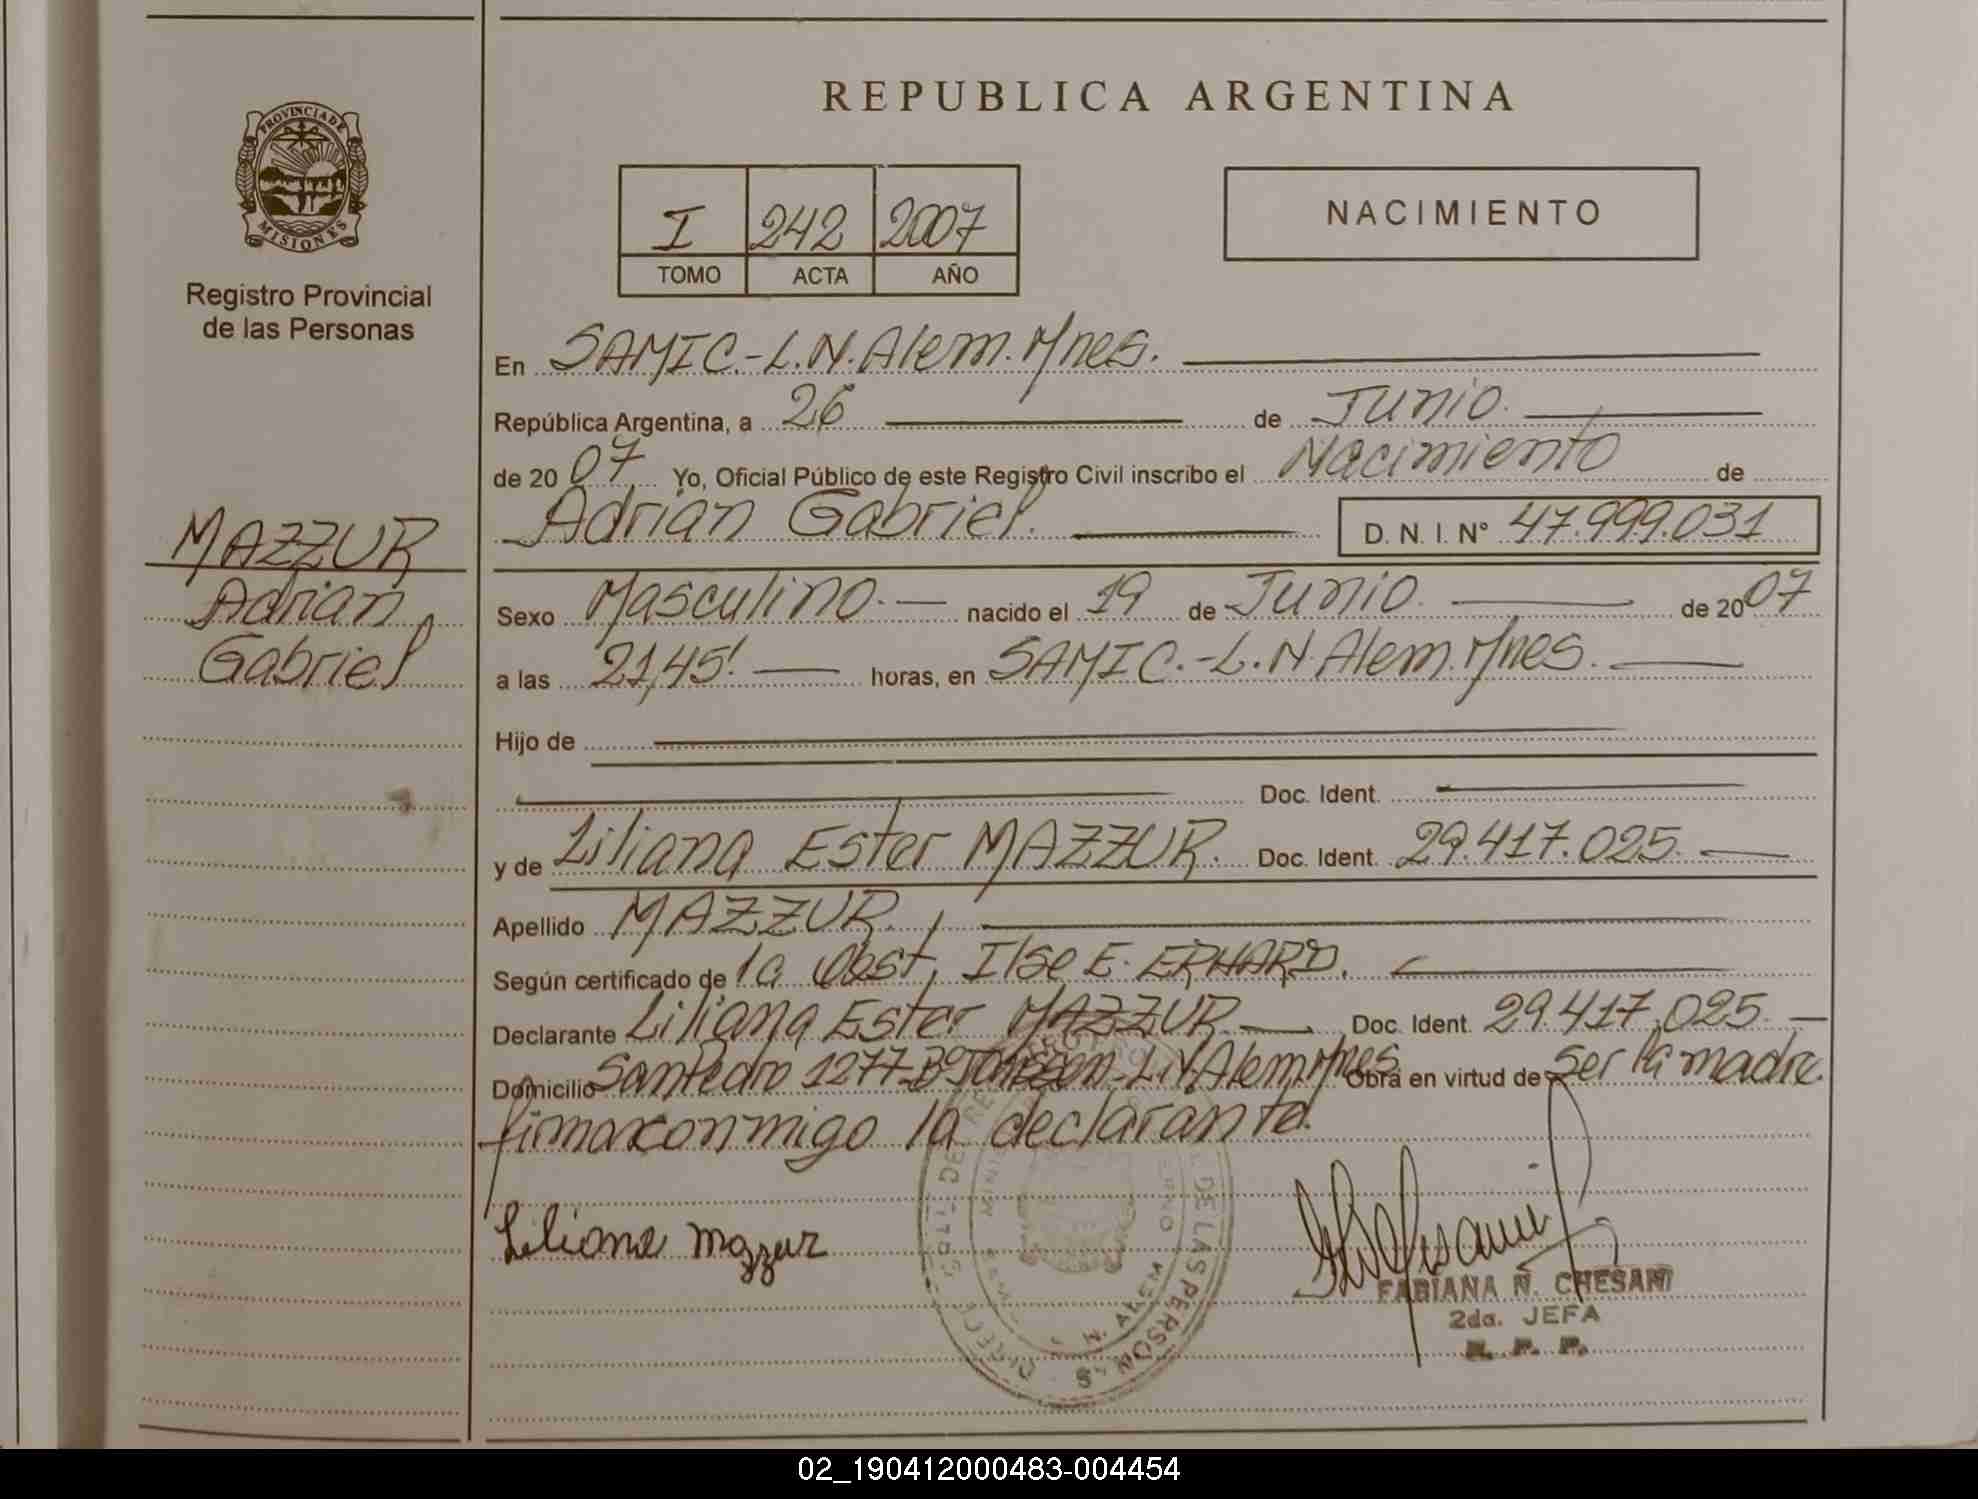 REPUBLICA ARGENTINA
PROVINCIA DE
MISIONES
Registro Provincial
de las Personas
I 242 2007
TOMO ACTA AÑO
NACIMIENTO
En SAMIC.-L.N.Alem.Mnes.
República Argentina, a 26 de Junio.
de 2007 Yo, Oficial Público de este Registro Civil inscribo el Nacimiento de
Adrián Gabriel. D. N. I. N° 47.999.031
MAZZUR
Adrián
Gabriel
Sexo Masculino. nacido el 19 de Junio. de 2007
a las 21,45' horas, en SAMIC.-L.N.Alem.Mnes.
Hijo de
Doc. Ident.
y de Liliana Ester MAZZUR. Doc. Ident. 29.417.025.
Apellido MAZZUR.
Según certificado de la Obst, Ilse E. ERHARD.
Declarante Liliana Ester MAZZUR Doc. Ident. 29.417.025.
Domicilio San Pedro 1277-B° L.N.Alem.Mnes Obra en virtud de Ser la madre.
firma conmigo la declarante.
Liliana Mazzur
DE LAS PERSONAS
N. ALEM
FABIANA N. CHESANI
2da. JEFA
R. P. P.
02_190412000483-004454